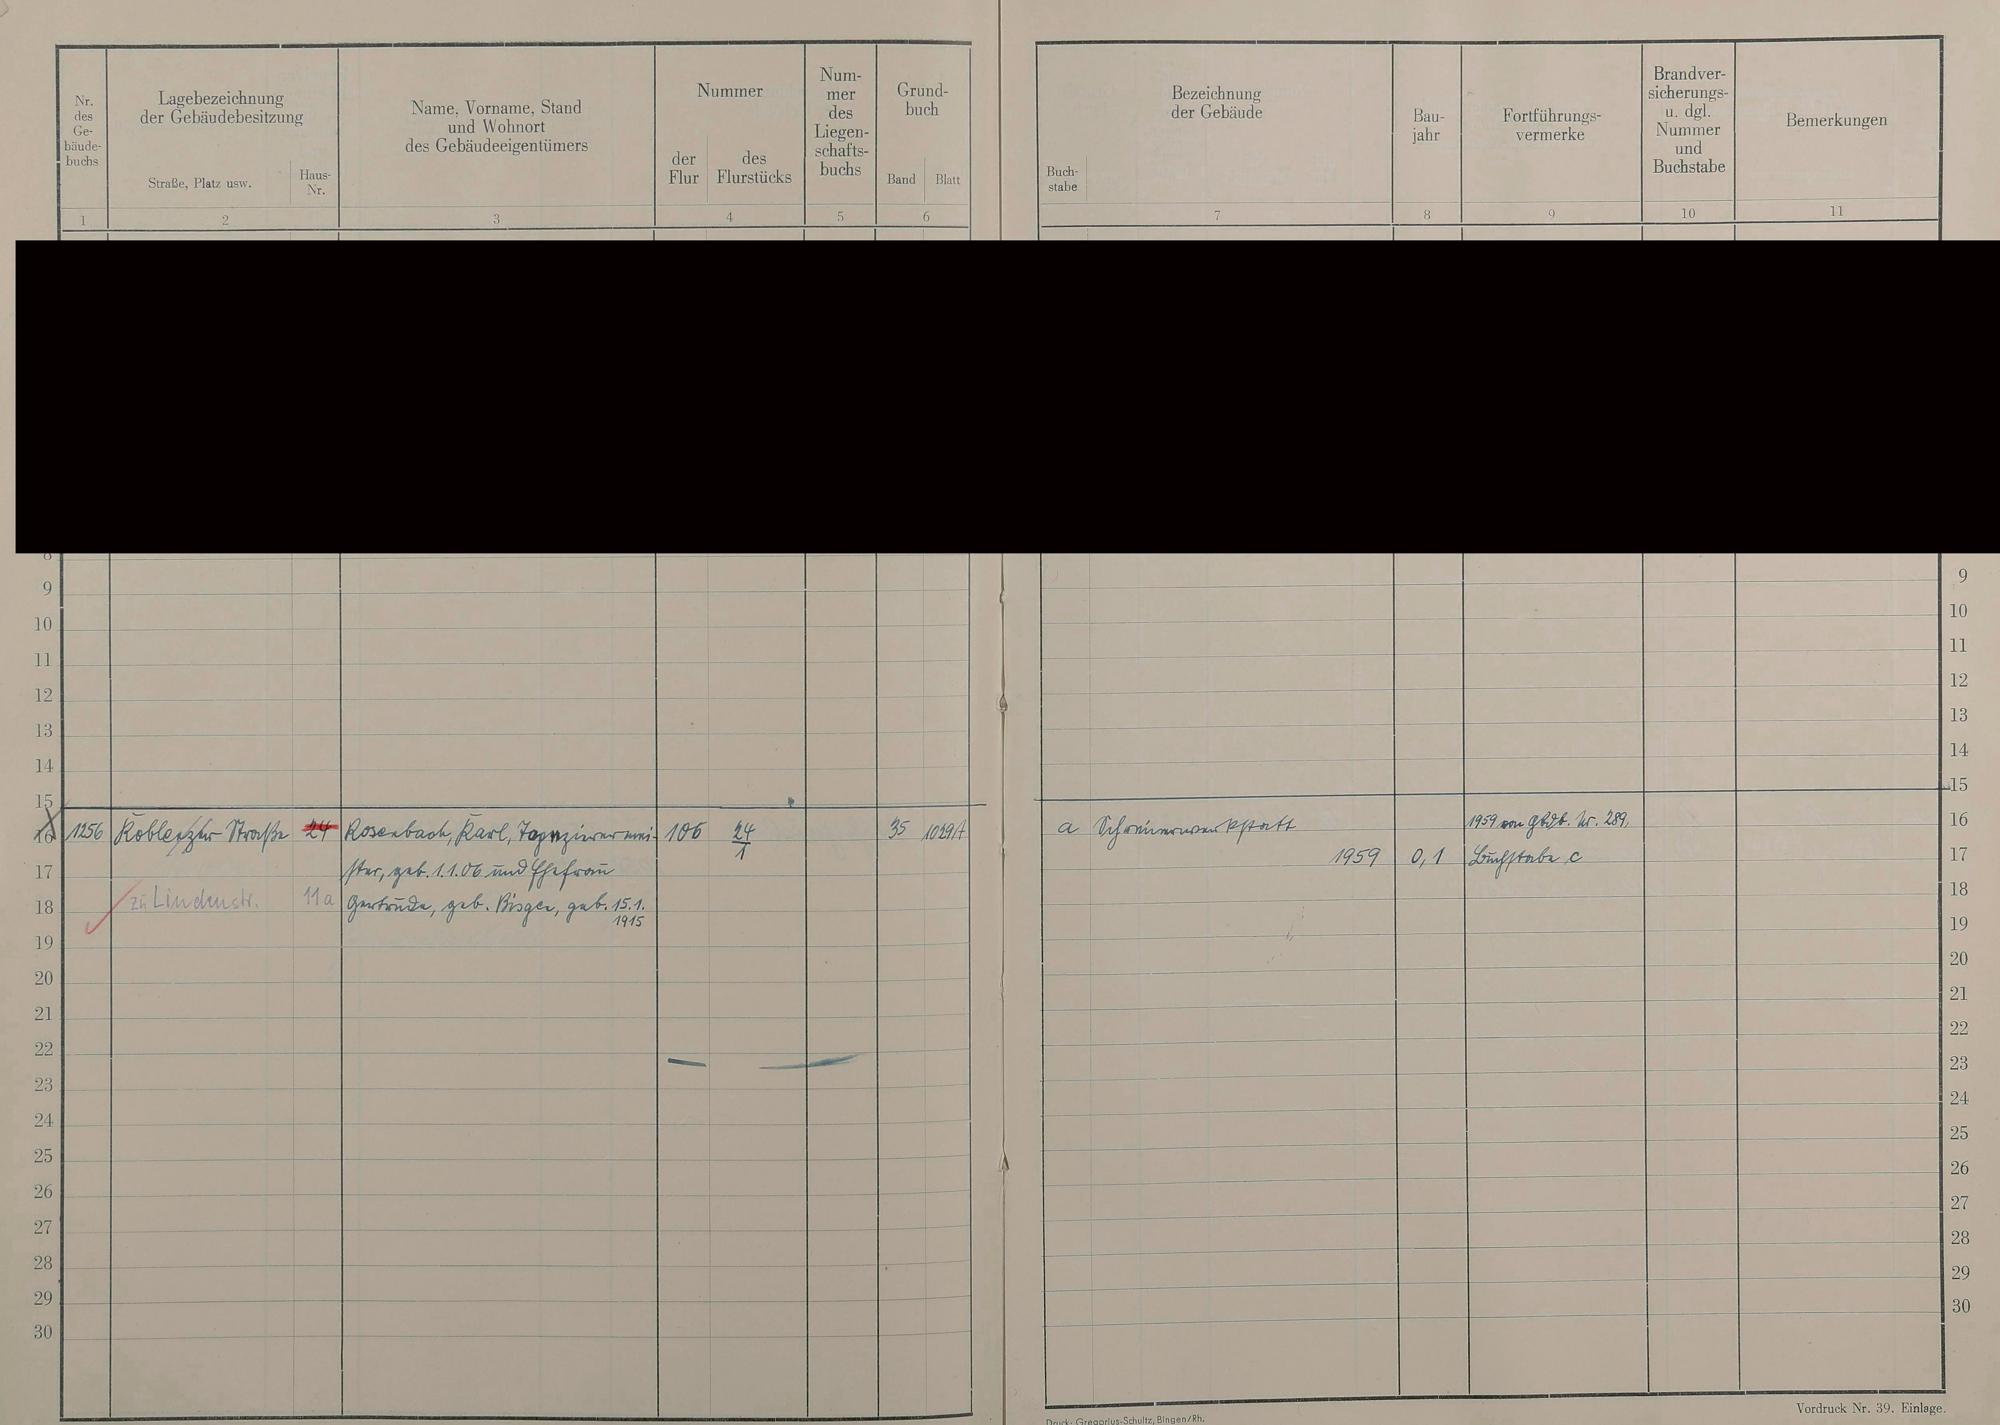 Nr.
des
Ge-
bäude-
buchs
Lagebezeichnung
der Gebäudebesitzung
Straße, Platz usw.
Haus-
Nr.
Name, Vorname, Stand
und Wohnort
des Gebäudeeigentümers
Nummer
der
Flur
des
Flurstücks
Num-
mer
des
Liegen-
schafts-
buchs
Grund-
buch
Band
Blatt
1
2
3
4
5
6
Buch-
stabe
Bezeichnung
der Gebäude
Bau-
jahr
Fortführungs-
vermerke
Brandver-
sicherungs-
u. dgl.
Nummer
und
Buchstabe
Bemerkungen
7
8
9
10
11
8
9
10
11
12
13
14
15
16 1256 Koblenzer Straße 24 Rosenbach, Karl, Tapezierermei- 106 24/1 35 1029A
17 ster, geb. 1.1.06 und Ehefrau
18 zu Lindenstr. 11a Gertrude, geb. geb. 15.1.
1915
19
20
21
22
23
24
25
26
27
28
29
30
9
10
11
12
13
14
15
a Schreinerwerkstatt 1959 von Gbdb. Nr. 289, 16
1959 0,1 Buchstabe c 17
18
19
20
21
22
23
24
25
26
27
28
29
30
Druck: Gregorius-Schultz, Bingen/Rh.
Vordruck Nr. 39. Einlage.